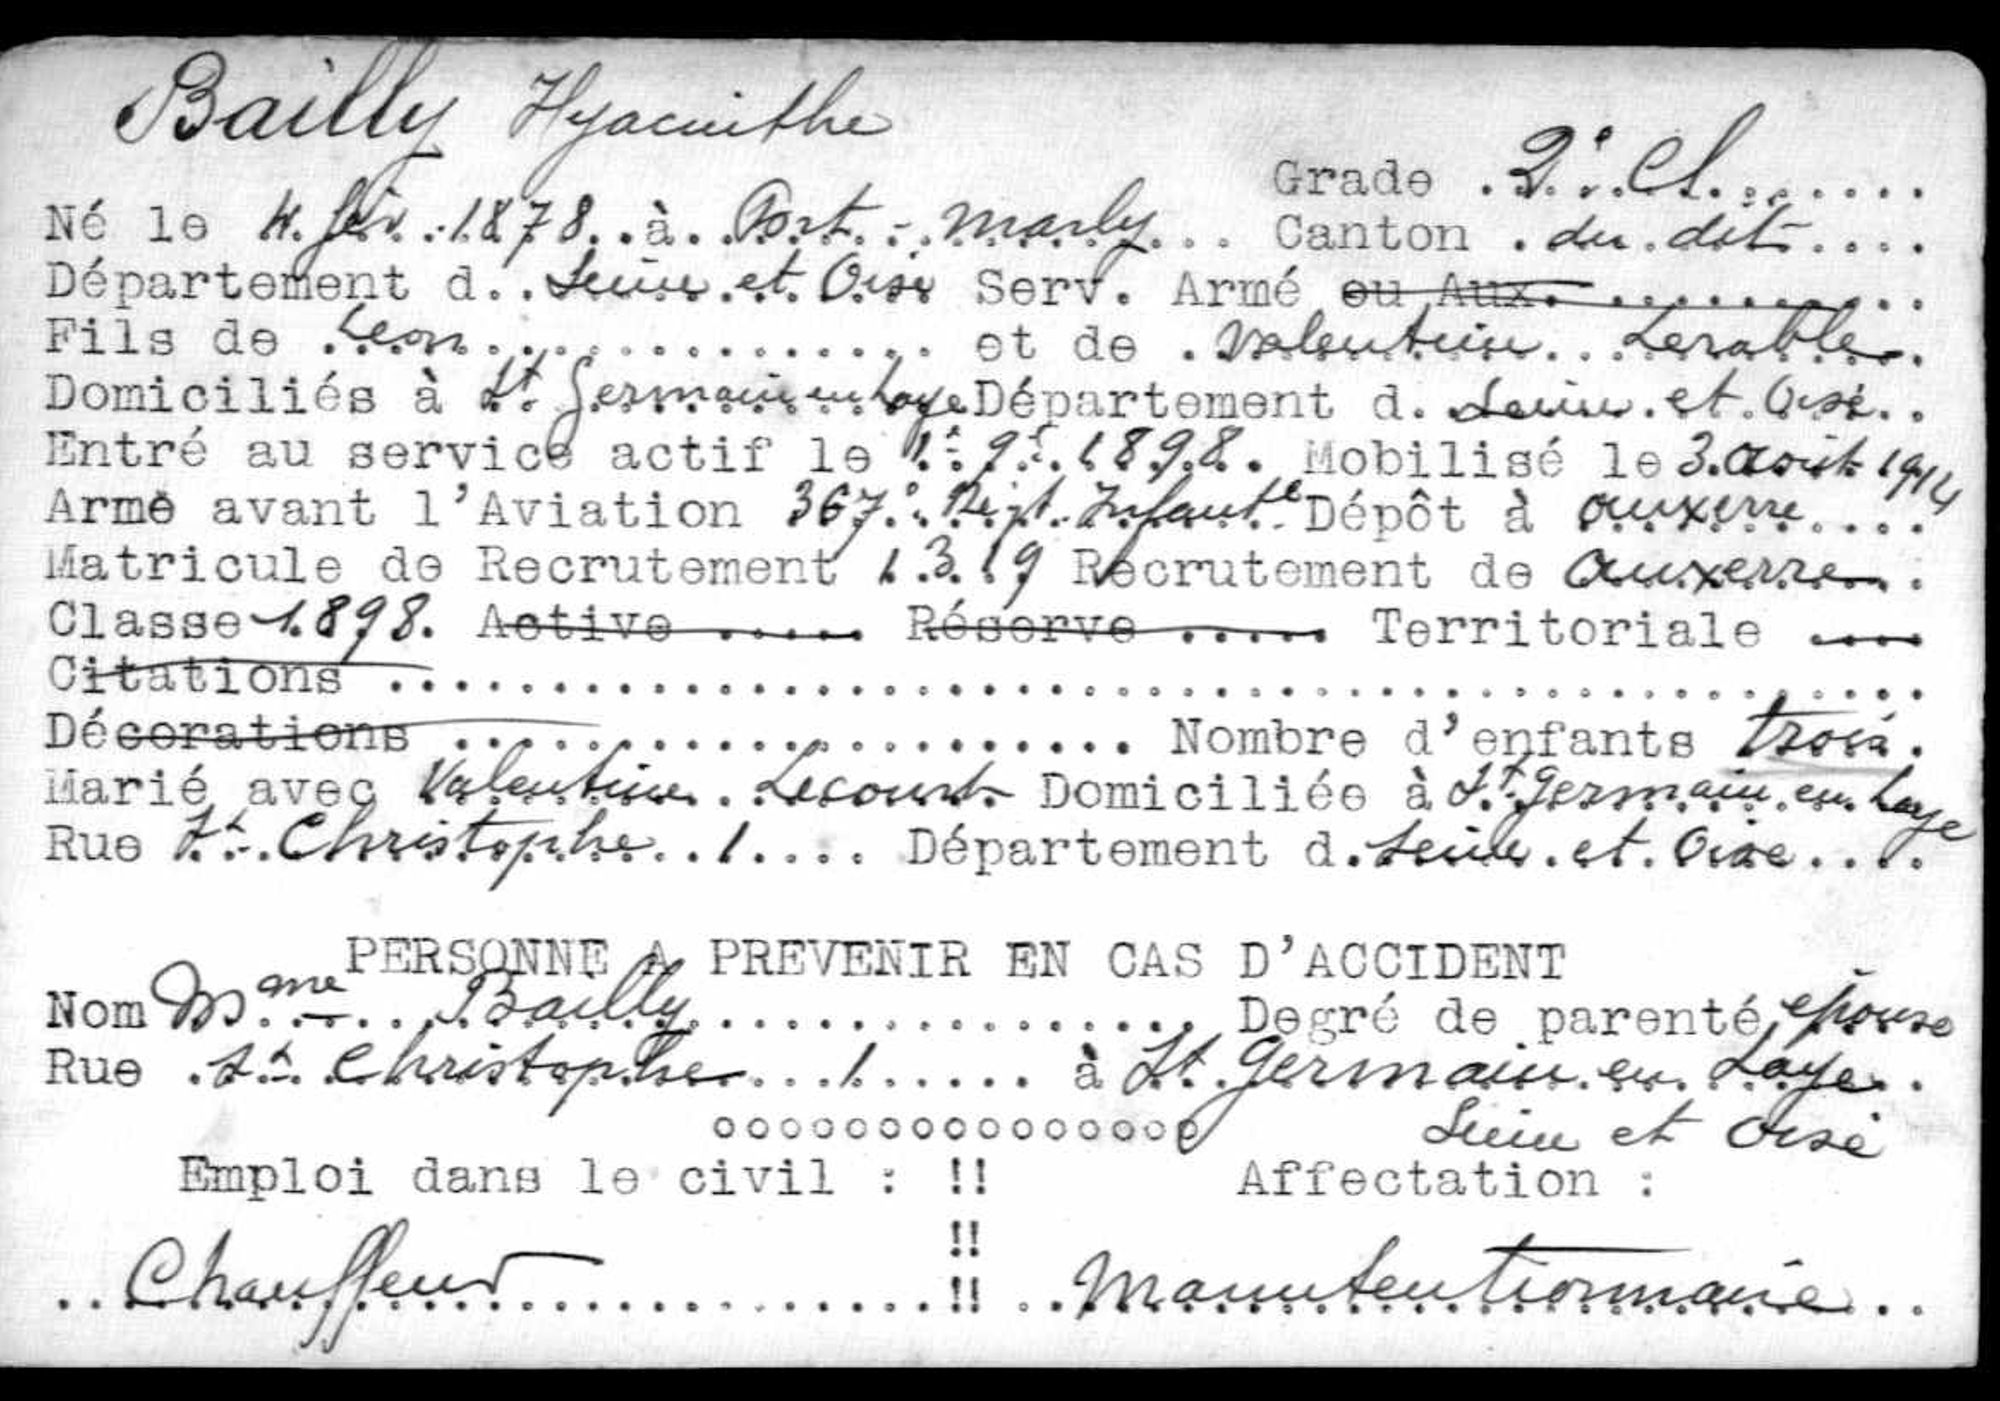 Bailly Hyacinthe
Grade 2e Cl.
Né le 4. fév. 1878. à Port-Marly Canton du dit
Département d. Seine et Oise Serv. Armé ou Aux.
Fils de Léon et de Valentine Lerable
Domiciliés à St Germain en Laye Département d. Seine et Oise
Entré au service actif le 1er 9bre 1898. Mobilisé le 3 août 1914
Arme avant l'Aviation 367e Régt. Infante Dépôt à Auxerre
Matricule de Recrutement 1319 Recrutement de Auxerre
Classe 1898. Active ..... Réserve ..... Territoriale ....
Citations
Décorations Nombre d'enfants trois.
Marié avec Valentine Lecourt Domiciliée à St. Germain en Laye
Rue St. Christophe 1 Département d. Seine et Oise
PERSONNE A PREVENIR EN CAS D'ACCIDENT
Nom Mme Bailly Degré de parenté épouse
Rue St. Christophe 1 à St. Germain en Laye
oooooooooooooooo Seine et Oise
Emploi dans le civil : !! Affectation :
!!
Chauffeur !! Manutentionnaire